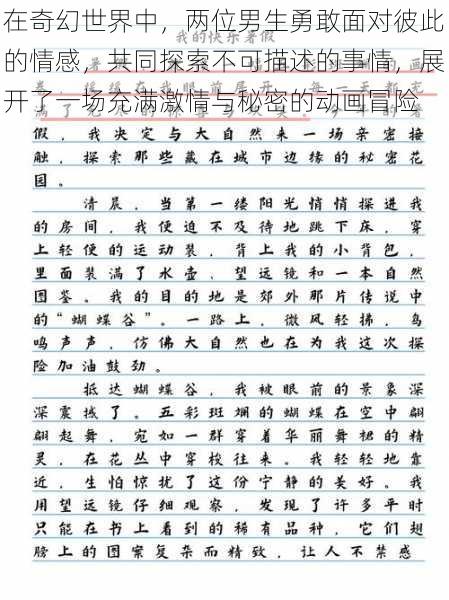 在奇幻世界中，两位男生勇敢面对彼此
的情感，共同探索不可描述的事情，展
开了一场充满激情与秘密的动画冒险
我的快乐暑假
假，我决定与大自然来一场亲密接
触，探索那些藏在城市边缘的秘密花
园。
清晨，当第一缕阳光悄悄探进我
的房间，我便迫不及待地跳下床，穿
上轻便的运动装，背上我的小背包，
里面装满了水壶、望远镜和一本自然
图鉴。我的目的地是郊外那片传说中
的“蝴蝶谷”。一路上，微风轻拂，鸟
鸣声声，仿佛大自然也在为我这次探
险加油鼓劲。
抵达蝴蝶谷，我被眼前的景象深
深震撼了。五彩斑斓的蝴蝶在空中翩
翩起舞，宛如一群穿着华丽舞裙的精
灵，在花丛中穿梭往来。我轻轻地靠
近，生怕惊扰了这份宁静的美好。我
用望远镜仔细观察，发现了许多平时
只能在书上看到的稀有品种，它们翅
膀上的图案复杂而精致，让人不禁感